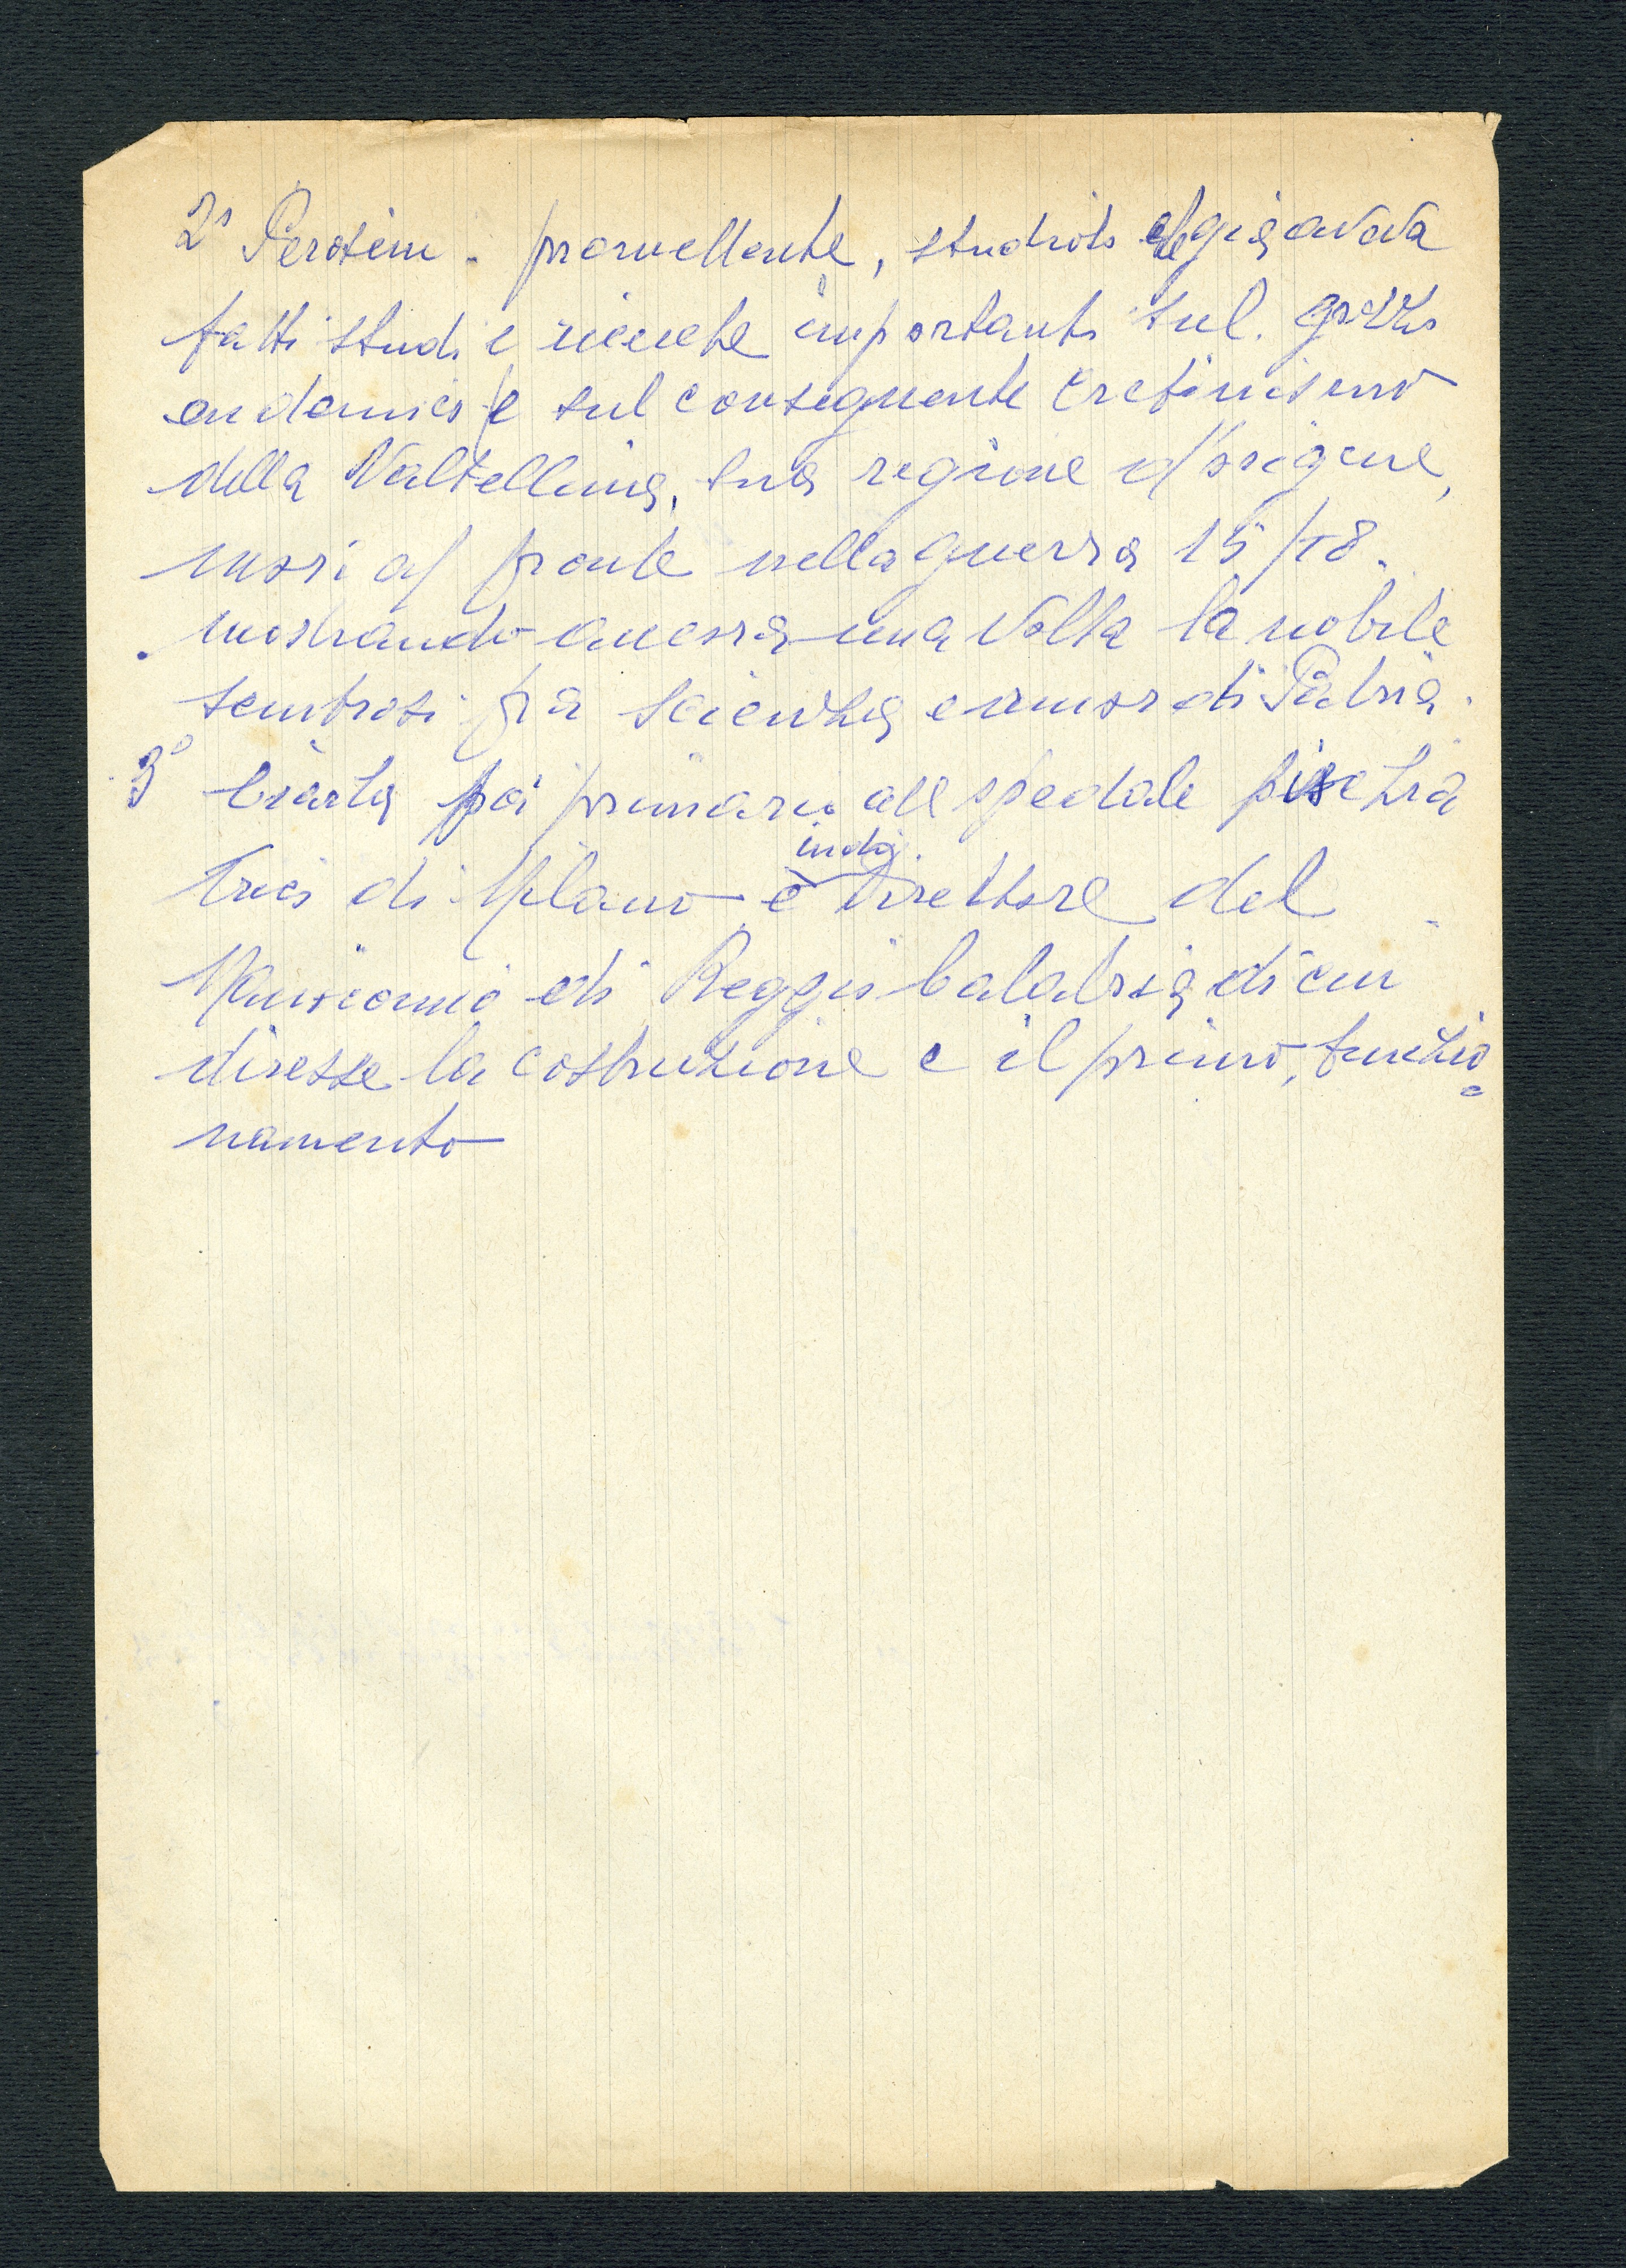 2° Perosini - promettente, studioso che già aveva
fatti studi e ricerche importanti sul gozzo
endemico e sul conseguente cretinismo
della Valtellina, sua regione d'origine,
morì al fronte nella guerra 15/18.
mostrando ancora una volta la nobile
simbiosi fra scienza e amor di Patria.
3° poi primario all'ospedale psichia
trico di Milano e indi Direttore del
Manicomio di Reggio Calabria di cui
diresse la costruzione e il primo, funzio
namento